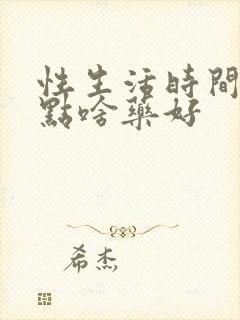 性生活時間
點啥藥好
希杰